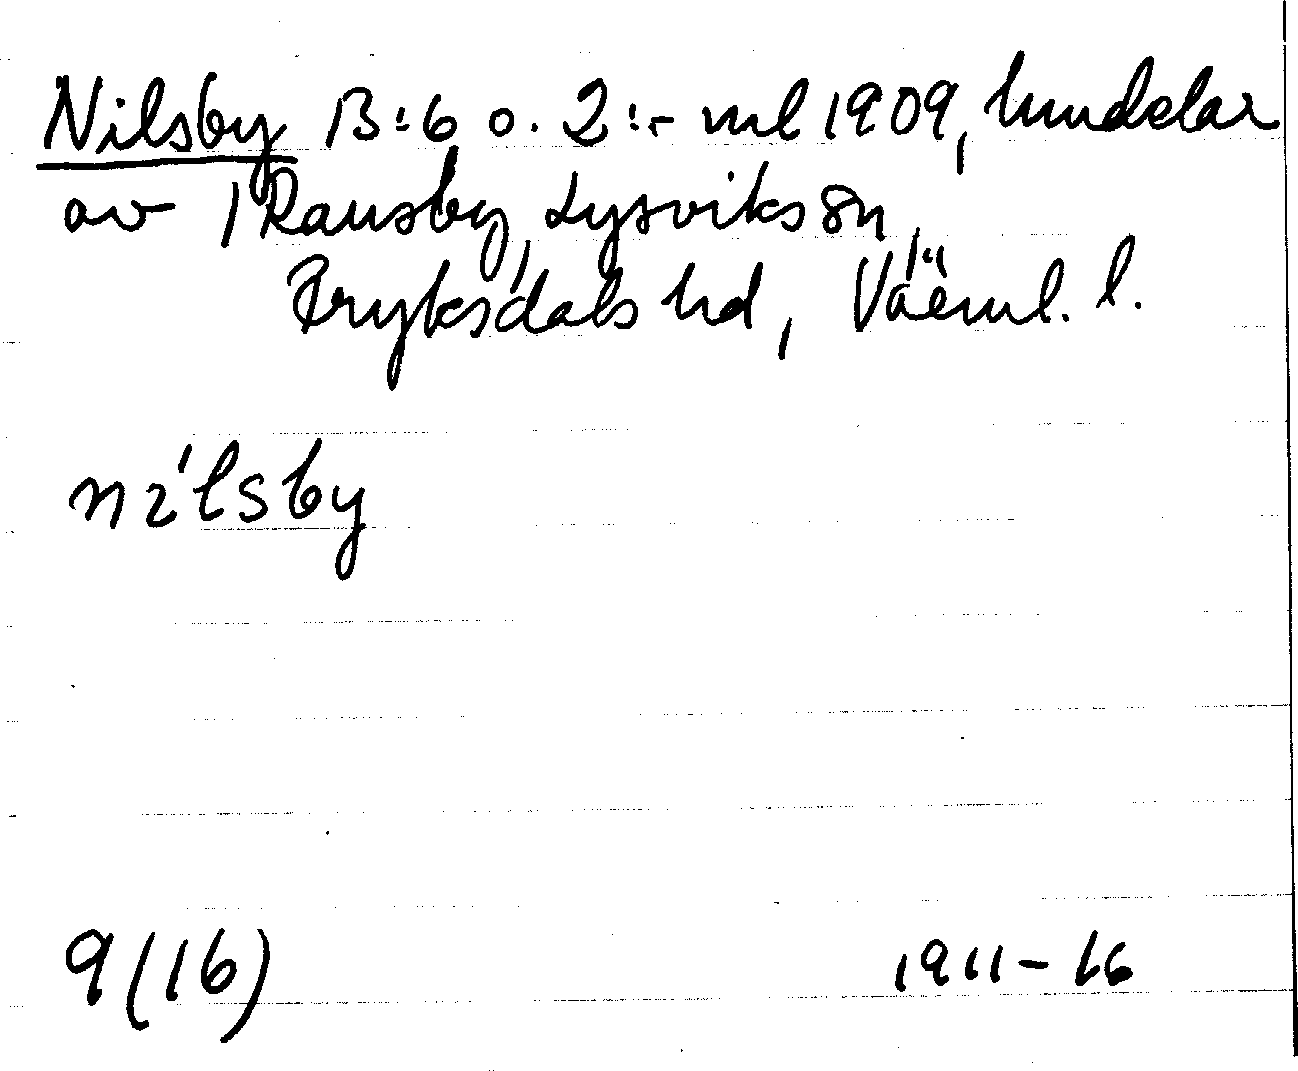 Nilsby B:6 o. 2:- ml 1909, hmdelar
av 1 Ransby, Lysviks sn,
Fryksdals hd, Värml. l.
nílsby
9(16) 1911-16